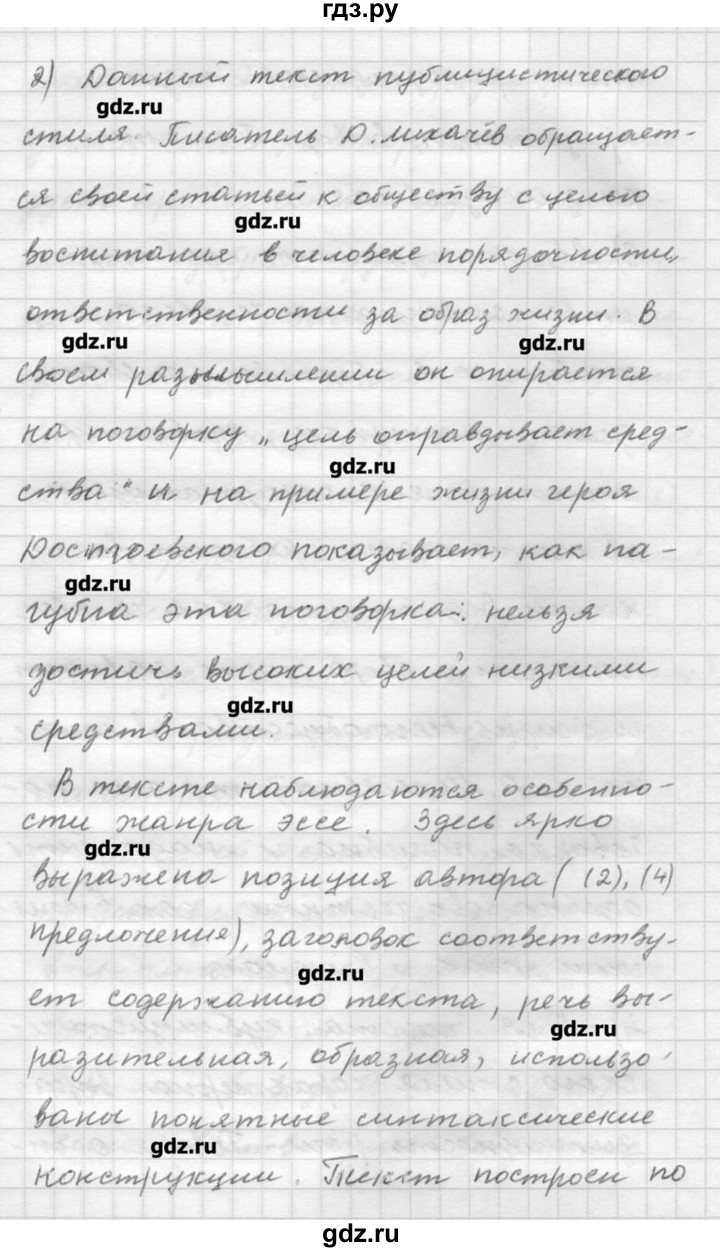 гдз.ру
2) Данный текст публицистического
gdz.ru
стиля. Писатель Д. Лихачёв обращает-
ся своей статьей к обществу с целью
gdz.ru
воспитания в человеке порядочности,
ответственности за образ жизни. В
gdz.ru gdz.ru
своем размышлении он опирается
на поговорку „цель оправдывает сред-
gdz.ru
ства" и на примере жизни героя
Достоевского показывает, как па-
gdz.ru
губна эта поговорка: нельзя
достичь высоких целей низкими
gdz.ru
средствами.
В тексте наблюдаются особенно-
сти жанра эссе. Здесь ярко
gdz.ru
выражена позиция автора ( (2), (4)
предложения), заголовок соответству-
gdz.ru
ет содержанию текста, речь вы-
gdz.ru
разительная, образная, использо-
ваны понятные синтаксические
gdz.ru
конструкции. Текст построен по
gdz.ru